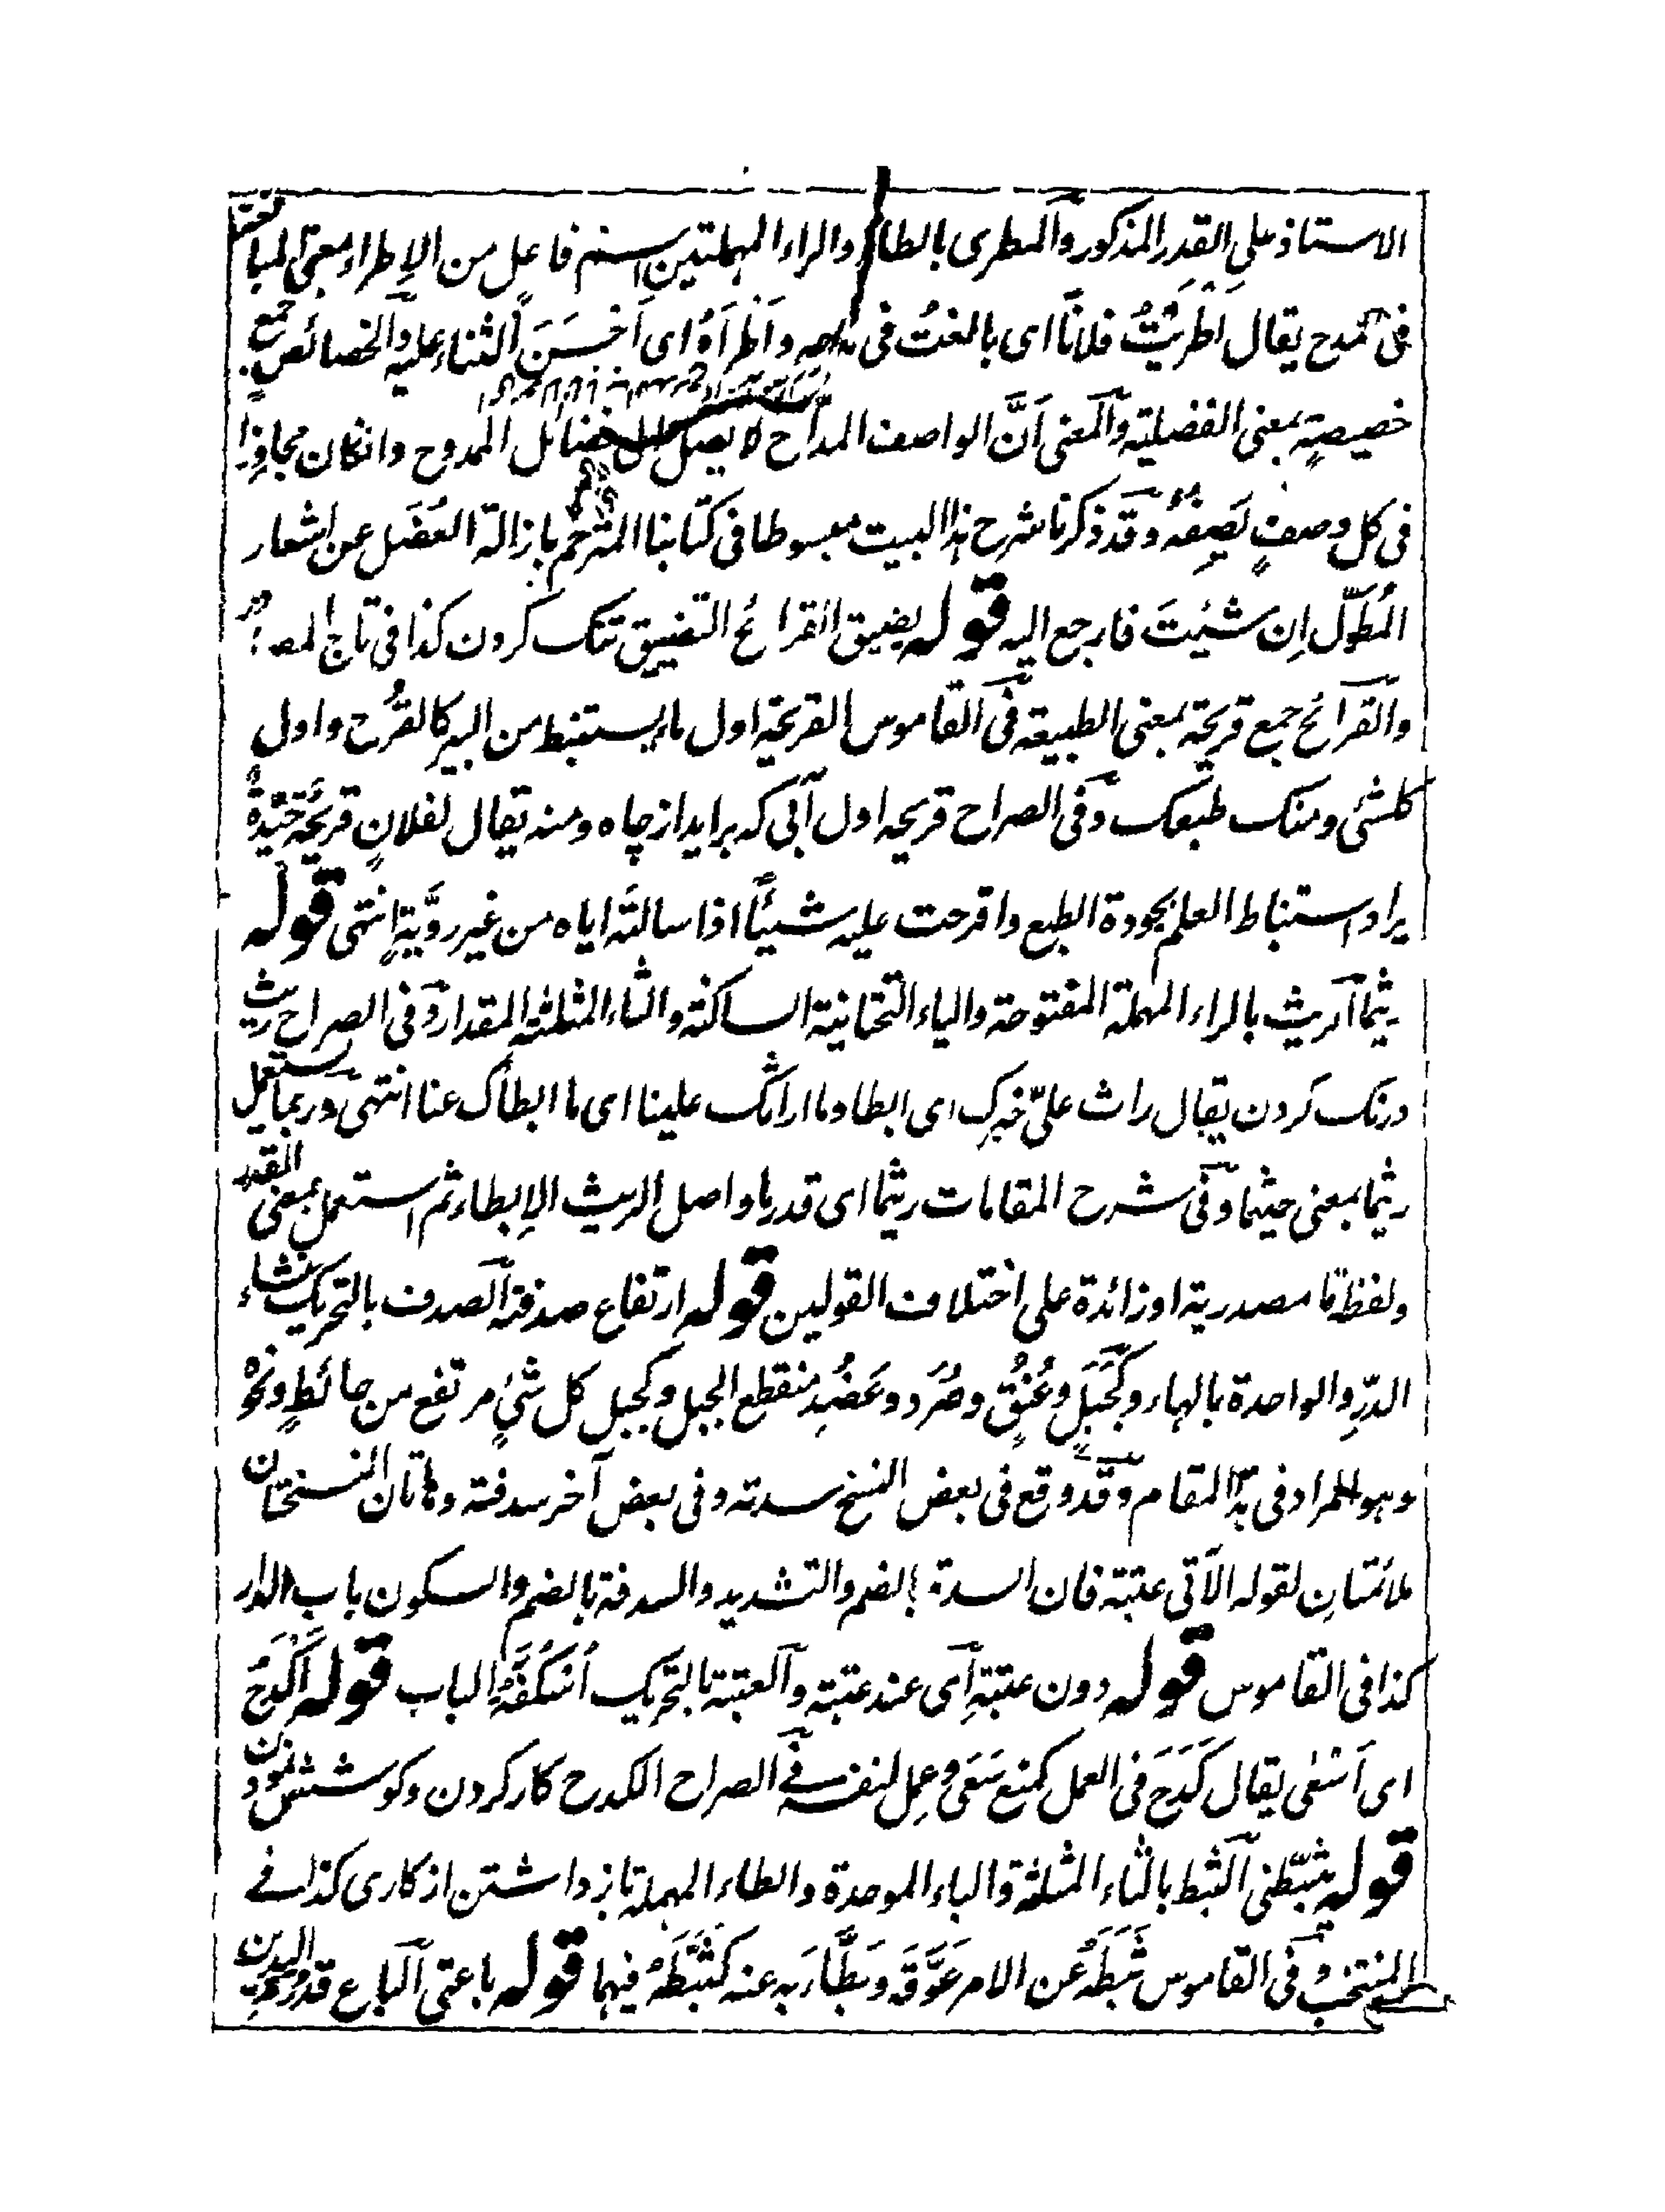 الاستاذ على القدر المذكور والمطرى بالطاء والراء المهملتين اسم فاعل من الاطراء بمعنى المبالغة
فى المدح يقال اَطْرَيْتُ فلانًا اى بالغتُ فى مدحه واَطْرَاَهُ اى اَحْسَنَ الثناء عليه والخصائص جمع
خصيصةٍ بمعنى الفضيلة والمعنى اَنَّ الواصف المداح لا يصل الى خصائل الممدوح وانكان مجاوِزًا
فى كل وصفٍ يَصِفُه وقد ذكرنا شرح هذا البيت مبسوطا فى كتابنا المترجم بازالة العُضَل عن اشعار
المُطَوَّل اِن شئتَ فارجع اليه قوله يضيق القرائح التضييق تنگ كردن كذا فى تاج
والقرائح جمع قريحة بمعنى الطبيعة فى القاموس القريحة اول ما يستنبط من البير كالقُرْح واول
كلشئ ومنك طبعك وفى الصراح قريحه اول آبى كه برايد از چاه ومنه يقال لفلانٍ قريحةٌ جيّدةٌ
يراد استنباط العلم بجودة الطبع واقرحت عليه شيئًا اذا سالتَه اياه من غير رويَّةٍ انتهى قوله
ريثما الريث بالراء المهملة المفتوحة والياء التحتانية الساكنة والثاء المثلثة المقدار وفى الصراح ريث
درنگ كردن يقال راث علىّ خبرك اى ابطا وما اراثك علينا اى ما ابطأك عنا انتهى وربما يستعمل
ريثما بمعنى حيثما وفى شرح المقامات ريثما اى قدر ما واصل الريث الاِبطاء ثم استعمل بمعنى القدر
ولفظ ما مصدرية او زائدة على اختلاف القولين قوله ارتفاع صدفة الصدف بالتحريك غشاء
الدرّ والواحدة بالهاء وكَجَبَلٍ وعُنُقٍ وصُرَد وعَضُدٍ منقطع الجبل وكجبل كل شئٍ مرتفع من حائطٍ ونحوه
وهو المراد فى هذا المقام وقد وقع فى بعض النسخ سدته وفى بعض آخر سدفته وهاتان النسختان
ملائمتان لقوله الآتى عتبة فان السدة بالضم والتشديد والسدفة بالضم والسكون باب الدار
كذا فى القاموس قوله دون عتبةِ اى عند عتبة والعتبة بالتحريك اُسْكُفَّةُ الباب قوله اَكْدَحُ
اى اَسْعٰى يقال كَدَحَ فى العمل كمنع سَعٰى وعمِل لنفسه فے الصراح الكدح كار كردن وكوشش نمودن
قوله يثبّطنى الثبط بالثاء المثلثة والباء الموحدة والطاء المهملة باز داشتن از كارى كذا فے
المنتخب وفى القاموس ثَبَطَهُ عن الامر عَوَّقَه وبَطَّأَ به عنه كثَبَّطَهُ فيهما قوله باعتى الباع قدر مد اليدين